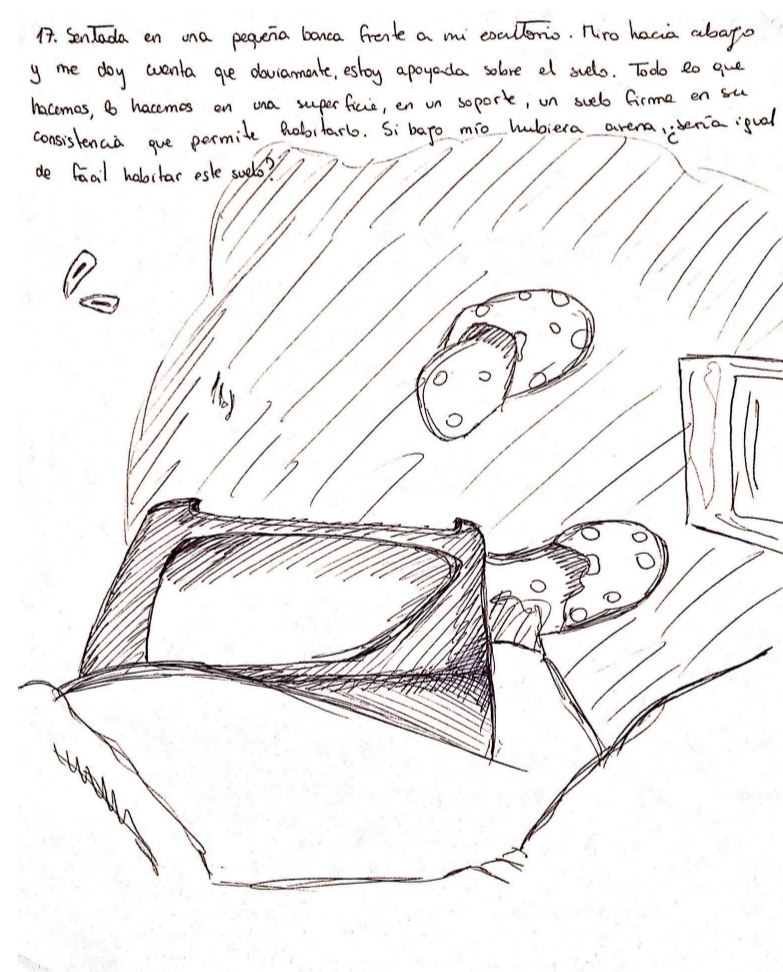 17. Sentada en una pequeña banca frente a mi escritorio. Miro hacia abajo
y me doy cuenta que obviamente, estoy apoyada sobre el suelo. Todo lo que
hacemos, lo hacemos en una superficie, en un soporte, un suelo firme en su
consistencia que permite habitarlo. Si bajo mío hubiera arena, ¿sería igual
de fácil habitar este suelo?